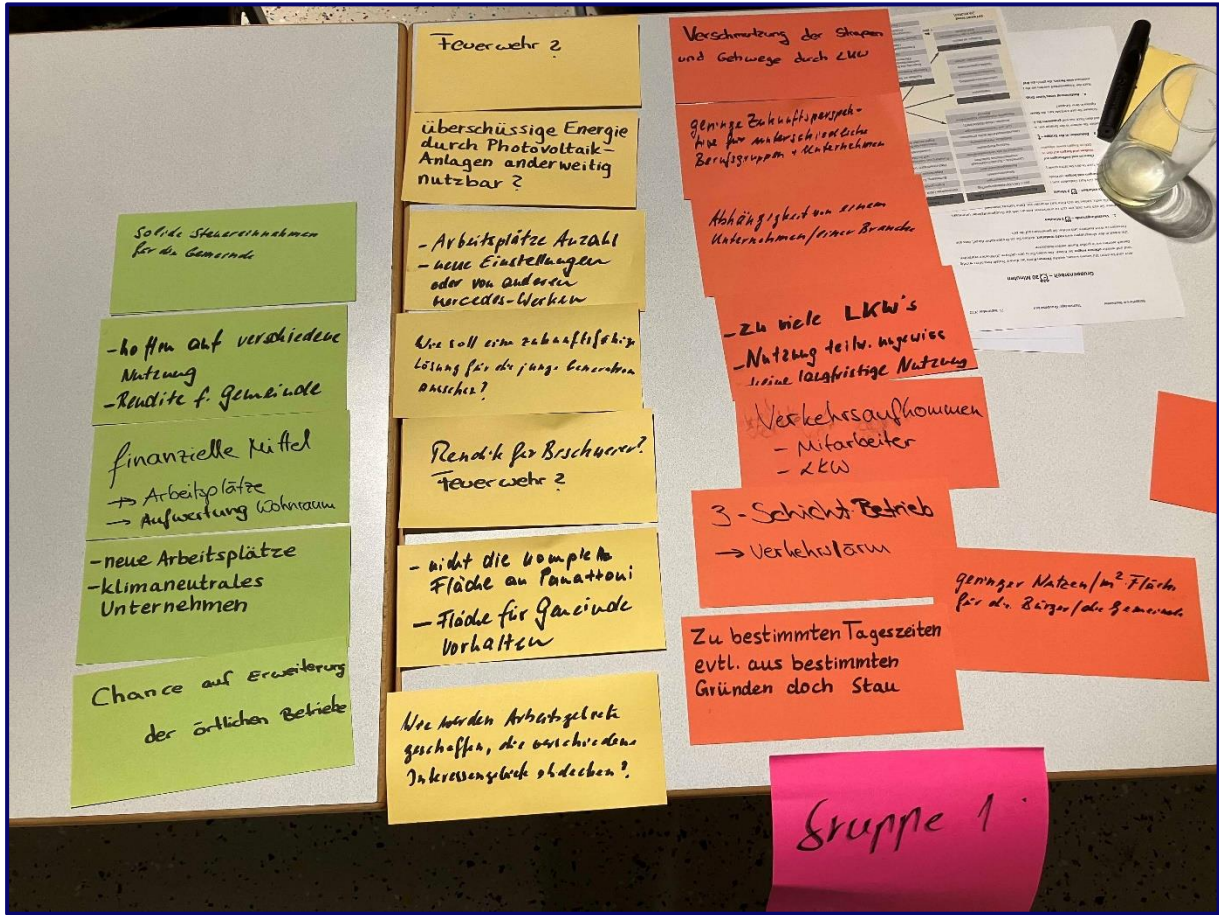 Solide Steuereinnahmen
für die Gemeinde
- hoffen auf verschiedene
Nutzung
- Rendite f. Gemeinde
finanzielle Mittel
→ Arbeitsplätze
→ Aufwertung Wohnraum
- neue Arbeitsplätze
- klimaneutrales
Unternehmen
Chance auf Erweiterung
der örtlichen Betriebe
Feuerwehr ?
überschüssige Energie
durch Photovoltaik-
Anlagen anderweitig
nutzbar ?
- Arbeitsplätze Anzahl
- neue Einstellungen
oder von anderen
Mercedes-Werken
Wie soll eine zukunftsfähige
Lösung für die junge Generation
aussehen?
Rendite für Beschwerer?
Feuerwehr ?
- nicht die komplette
Fläche an Panattoni
- Fläche für Gemeinde
vorhalten
Wie werden Arbeitsgebiete
geschaffen, die verschiedene
Interessengebiete abdecken?
Verschmutzung der Strapen
und Gehwege durch LKW
geringe Zukunftsperspek-
tive für unterschiedliche
Berufsgruppen + Unternehmen
Abhängigkeit von einem
Unternehmen/einer Branche
- zu viele LKW's
- Nutzung teilw. ungewiss
keine langfristige Nutzung
Verkehrsaufkommen
- Mitarbeiter
- LKW
3-Schicht-Betrieb
→ Verkehrslärm
geringer Nutzen/m² Fläche
für die Bürger/die Gemeinde
Zu bestimmten Tageszeiten
evtl. aus bestimmten
Gründen doch Stau
Gruppe 1
Gruppenarbeit - 20 Minuten